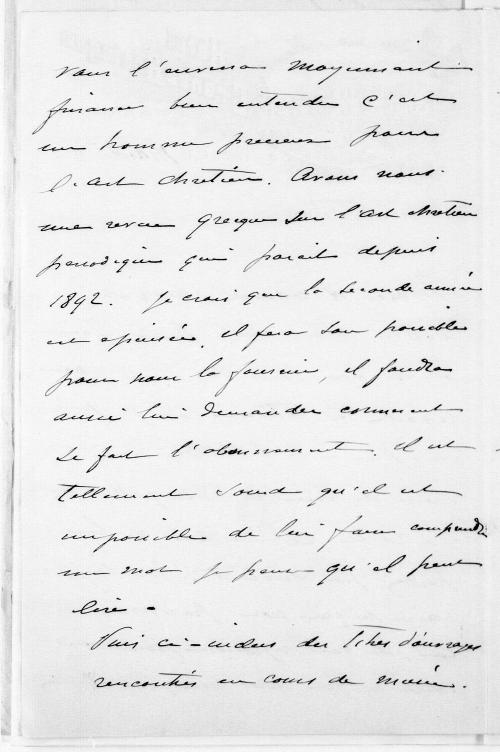 vous l'enverra moyennant
finance bien entendu c'est
un homme precieux pour
l'art chrétien. Avons nous
une revue grecque sur l'art chretien
periodique qui parait depuis
1892. Je crois que la seconde année
est epuisée, il fera son possible
pour nous la fournir, il faudra
aussi lui demander comment
se fait l'abonnement. Il est
tellement sourd qu'il est
impossible de lui faire comprendre
un mot je pense qu'il peut
lire -
Vois ci-inclus des titres d'ouvrages
rencontrés en cours de